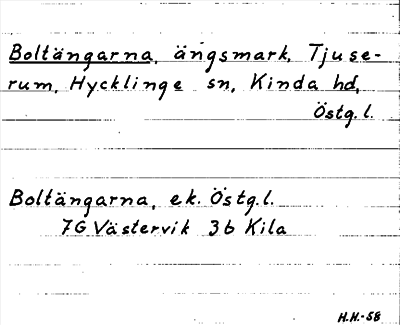 Boltängarna, ängsmark, Tjuse-
rum, Hycklinge sn, Kinda hd,
Östg.l.
Boltängarna, ek. Östg.l.
7G Västervik 3b Kila
H.H.-58